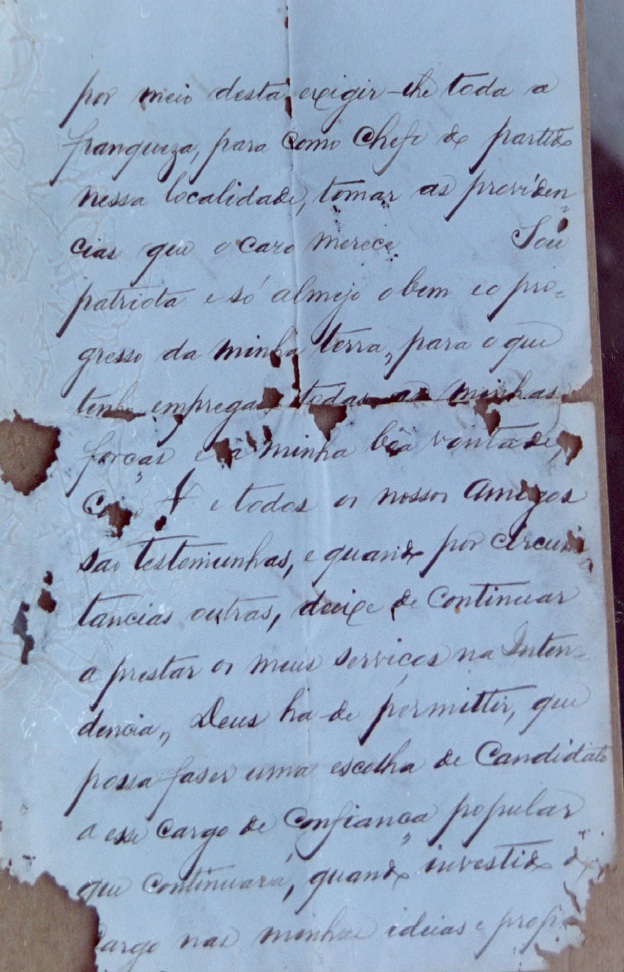 por meio desta exigir-lhe toda a
franqueza, para como Chefe do partido
nessa localidade, tomar as providen-
cias que o caso merece Sou
patriota e só almejo o bem e o pro=
gresso da minha terra, para o que
tenho empregado todas as minhas
forças e a minha bôa vontade,
e todos os nossos amigos
são testemunhas, e quando por circuns
tancias outras, deixe de continuar
a prestar os meus serviços na Inten-
dencia, Deus ha de permittir, que
possa faser uma escolha de Candidato
a esse cargo de confiança popular
que continuará, quando investido
cargo nas minhas ideias e